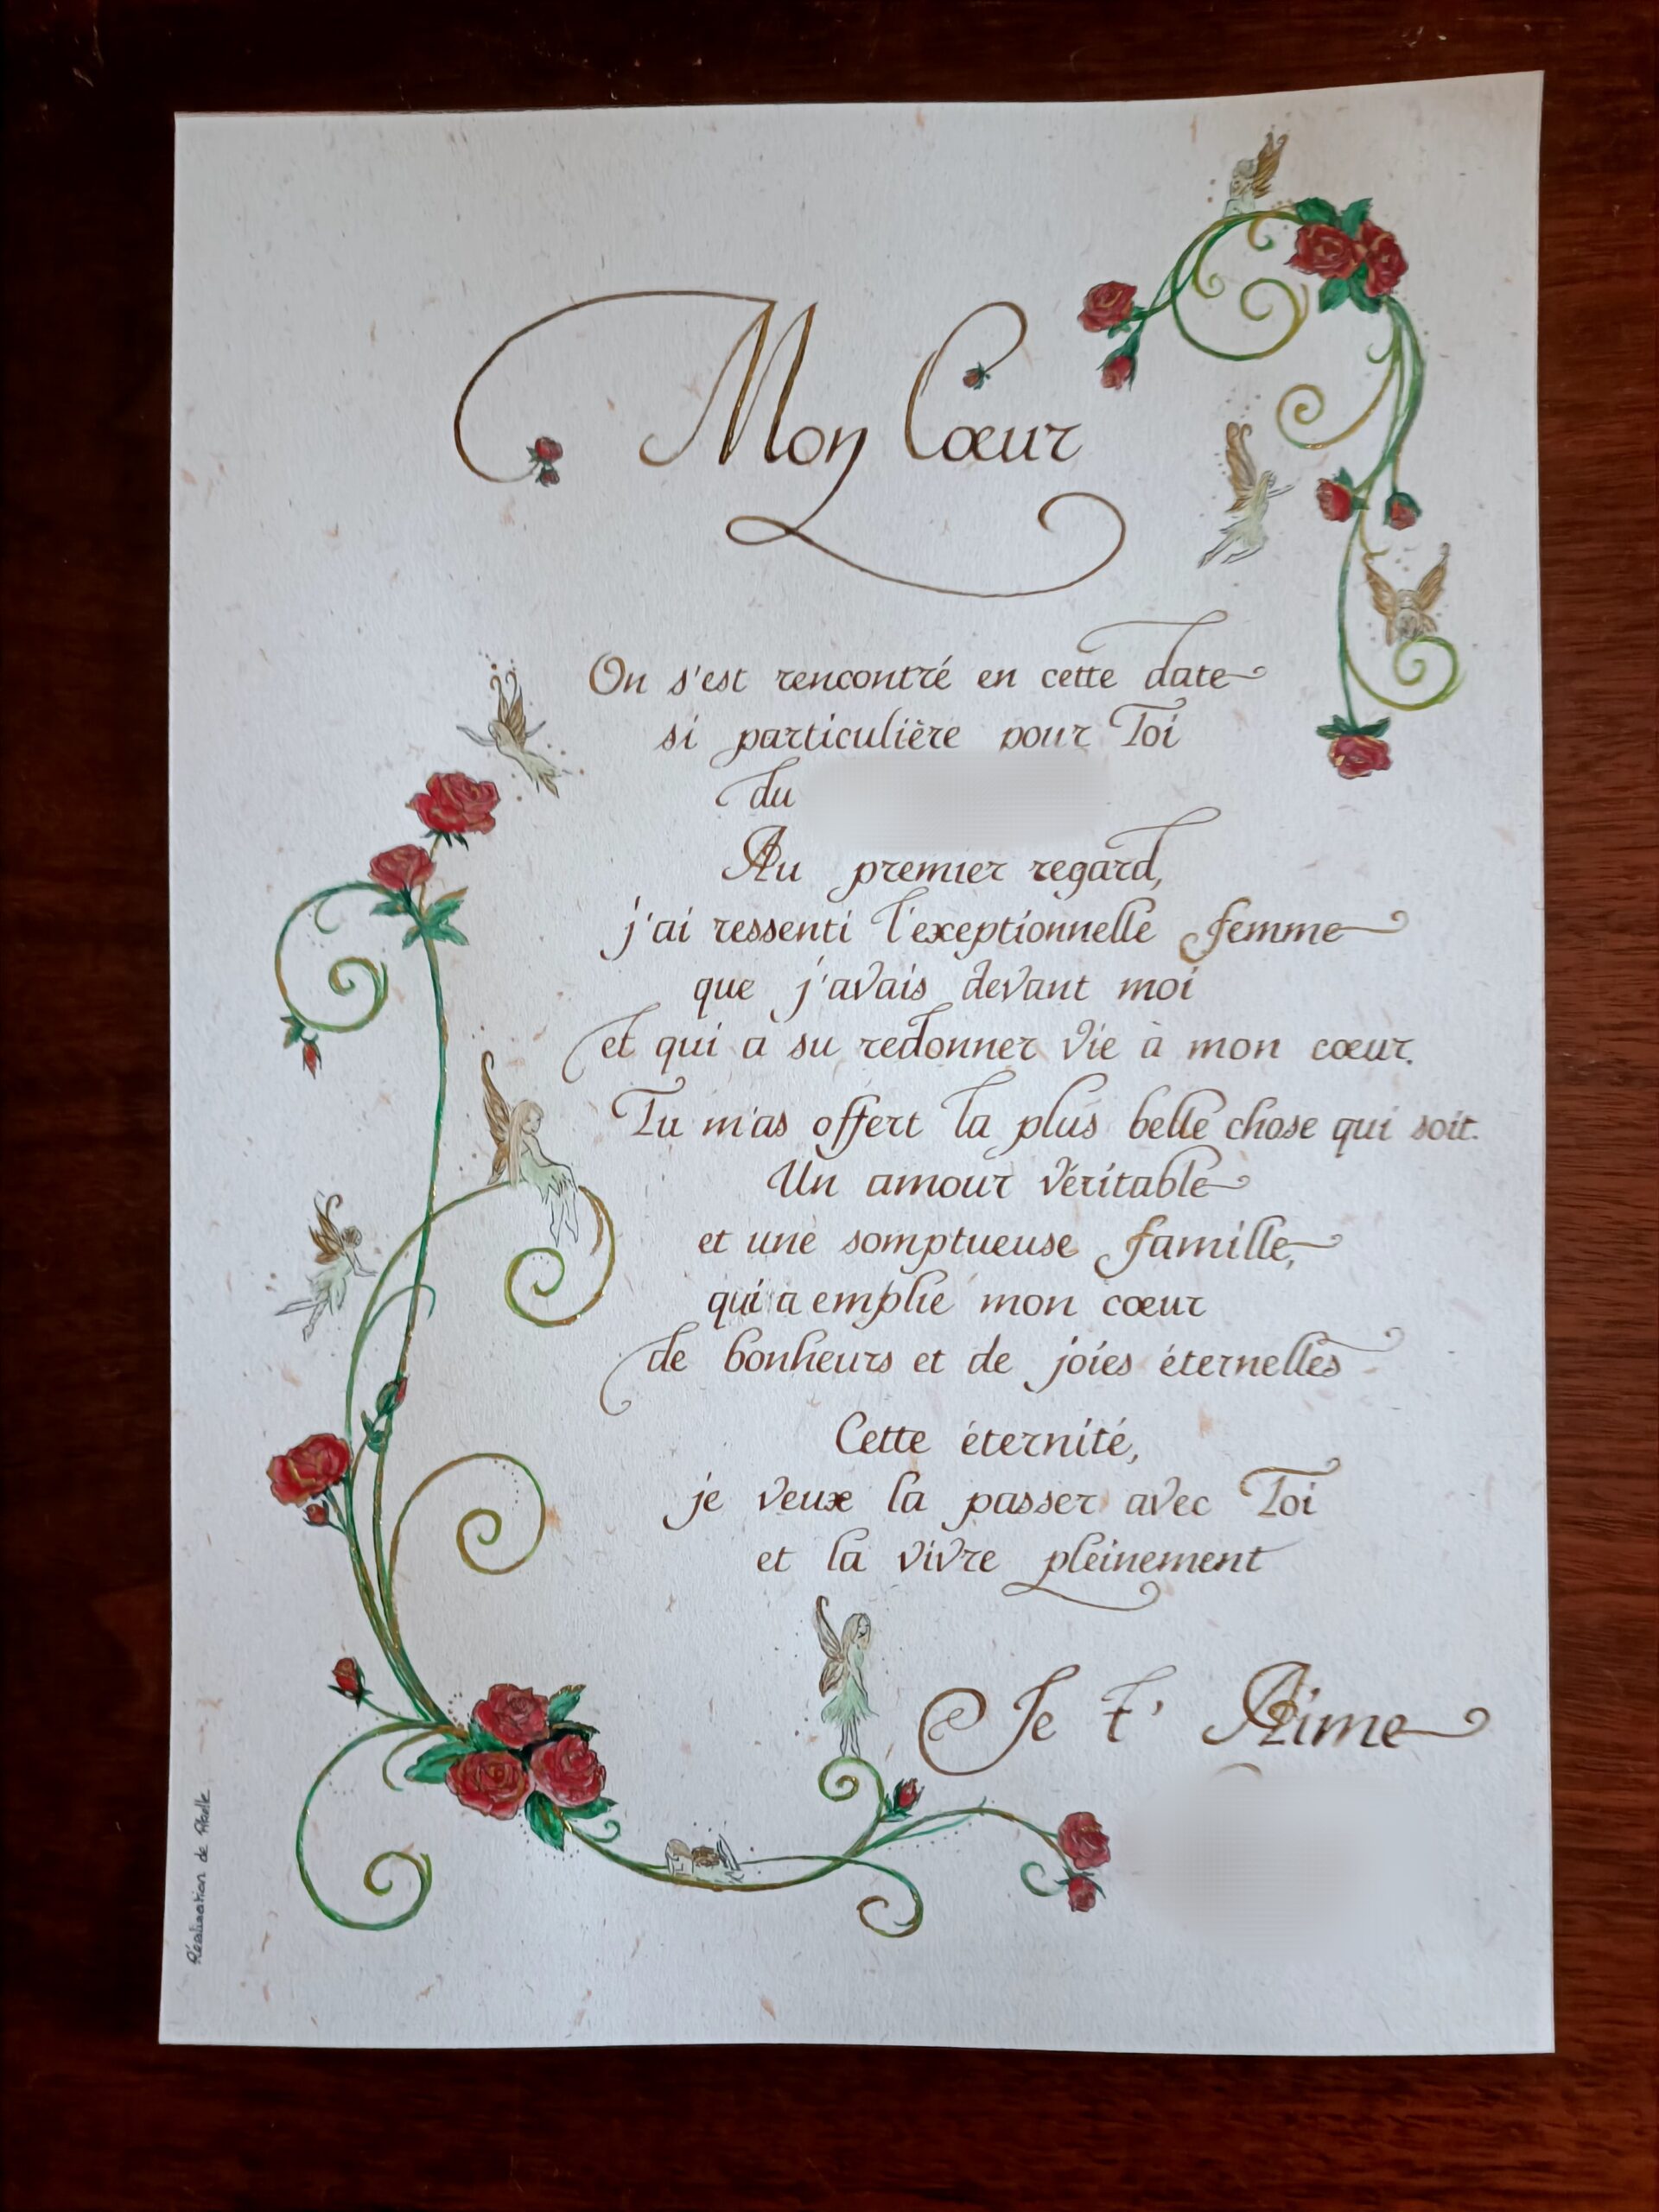 Mon Cœur
On s'est rencontré en cette date
si particulière pour Toi
du
Au premier regard,
j'ai ressenti l'exeptionnelle femme
que j'avais devant moi
et qui a su redonner vie à mon cœur.
Tu m'as offert la plus belle chose qui soit.
Un amour véritable
et une somptueuse famille,
qui a emplie mon cœur
de bonheurs et de joies éternelles
Cette éternité,
je veux la passer avec Toi
et la vivre pleinement
Je t'Aime
Réalisation de